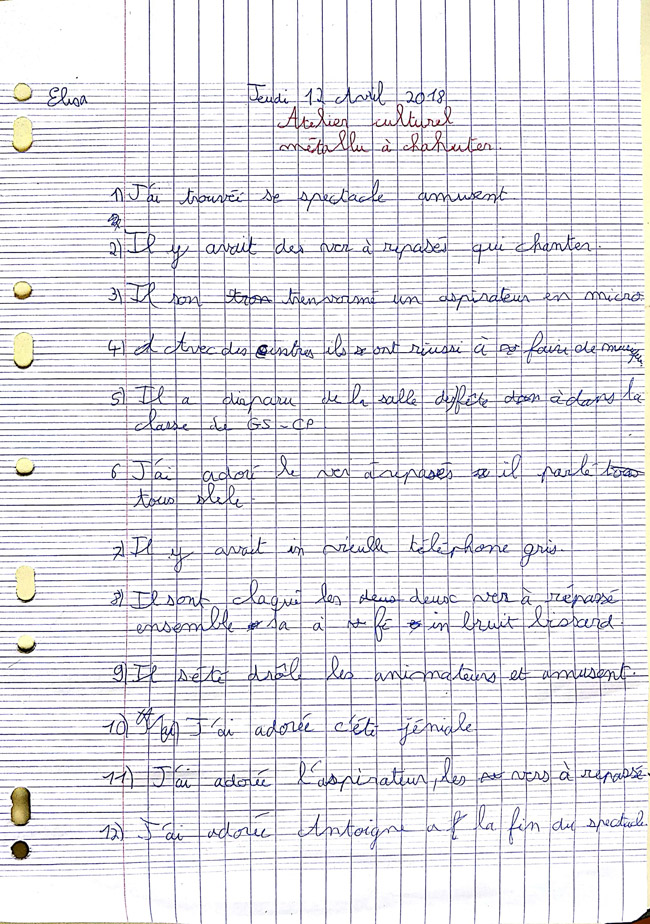 Elisa
Jeudi 12 Avril 2018
Atelier culturel
métallu à chahuter.
1) J'ai trouvéé se spectacle amusent.
2) Il y avait des ver à repasés qui chanter.
3) Il son trenvormé un aspirateur en micro.
4) Avec des cintres ils ont réussi à faire de
5) Il a disparu de la salle à dans la
classe de GS-CP
6 J'ai adoré le ver à repasés il parlé
tous
7) Il y avait in vieulle téléphone gris.
8) Il sont claqué les deux ver à répassé
ensemble sa à in bruit bissard.
9) Il s'été drôl les animateurs et amusent.
10) J'ai adorée c'été jéniale
11) J'ai adorée l'aspirateur, les vers à repassé.
12) J'ai adorée Antoigne a la fin du spectacle